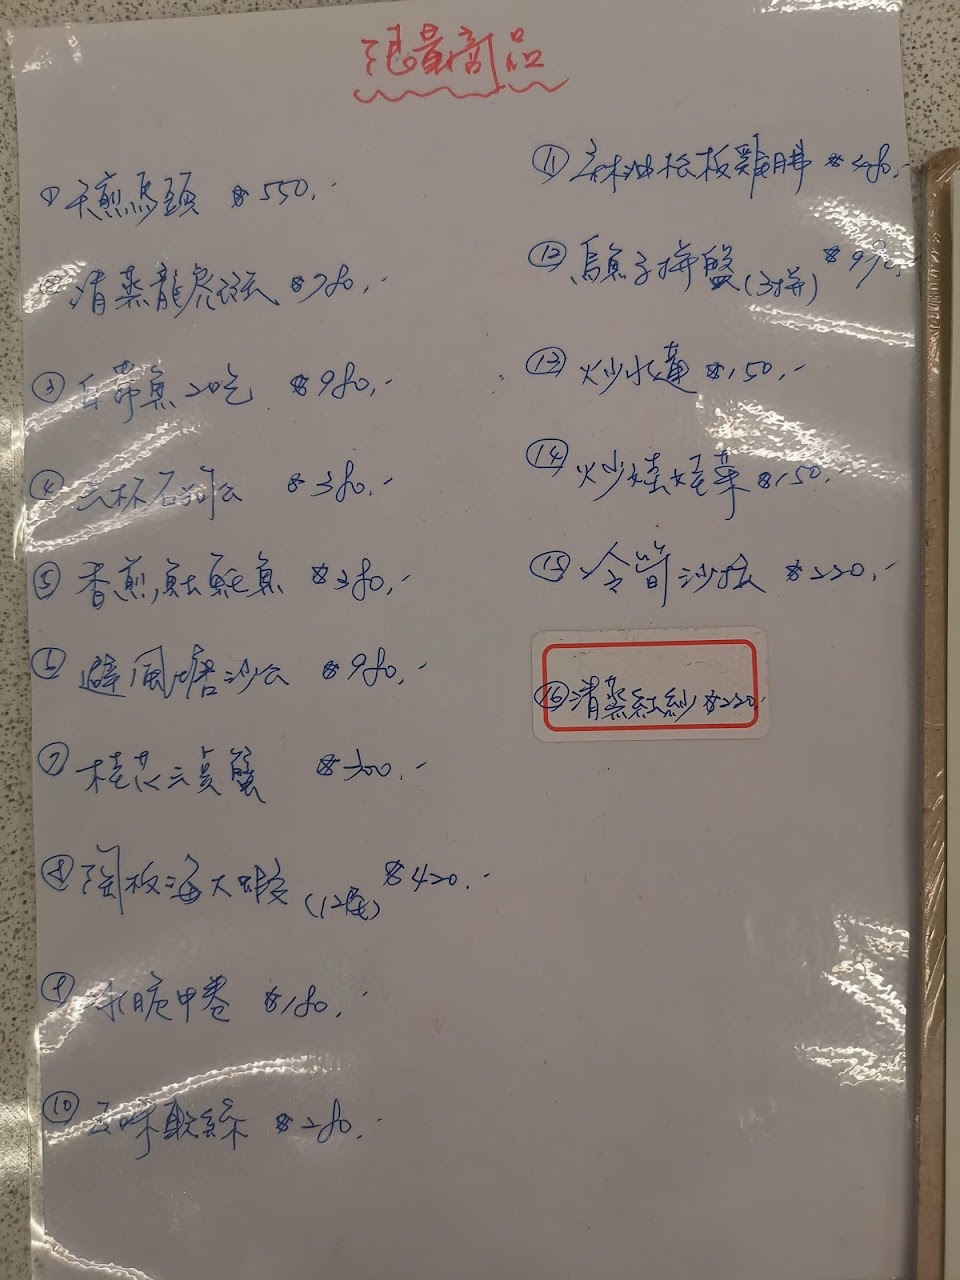 限量商品
① 干煎馬頭 $550.-
② 清蒸龍虎斑 $780.-
③ 白帶魚二吃 $980.-
④ 三杯石 $380.-
⑤ 香煎魚土魠魚 $380.-
⑥ 避風塘沙公 $980.-
⑦ 桂花三點蟹 $300.-
⑧ 陶板海大蝦 (12尾) $420.-
⑨ 冰脆中卷 $180.-
⑩ 五味軟絲 $280.-
⑪ 麻油松板雞脾 $480.-
⑫ 烏魚子拼盤 (3拼) $980.-
⑬ 炒水蓮 $150.-
⑭ 炒娃娃菜 $150.-
⑮ 冷筍沙拉 $220.-
⑯ 清蒸紅紗 $220.-